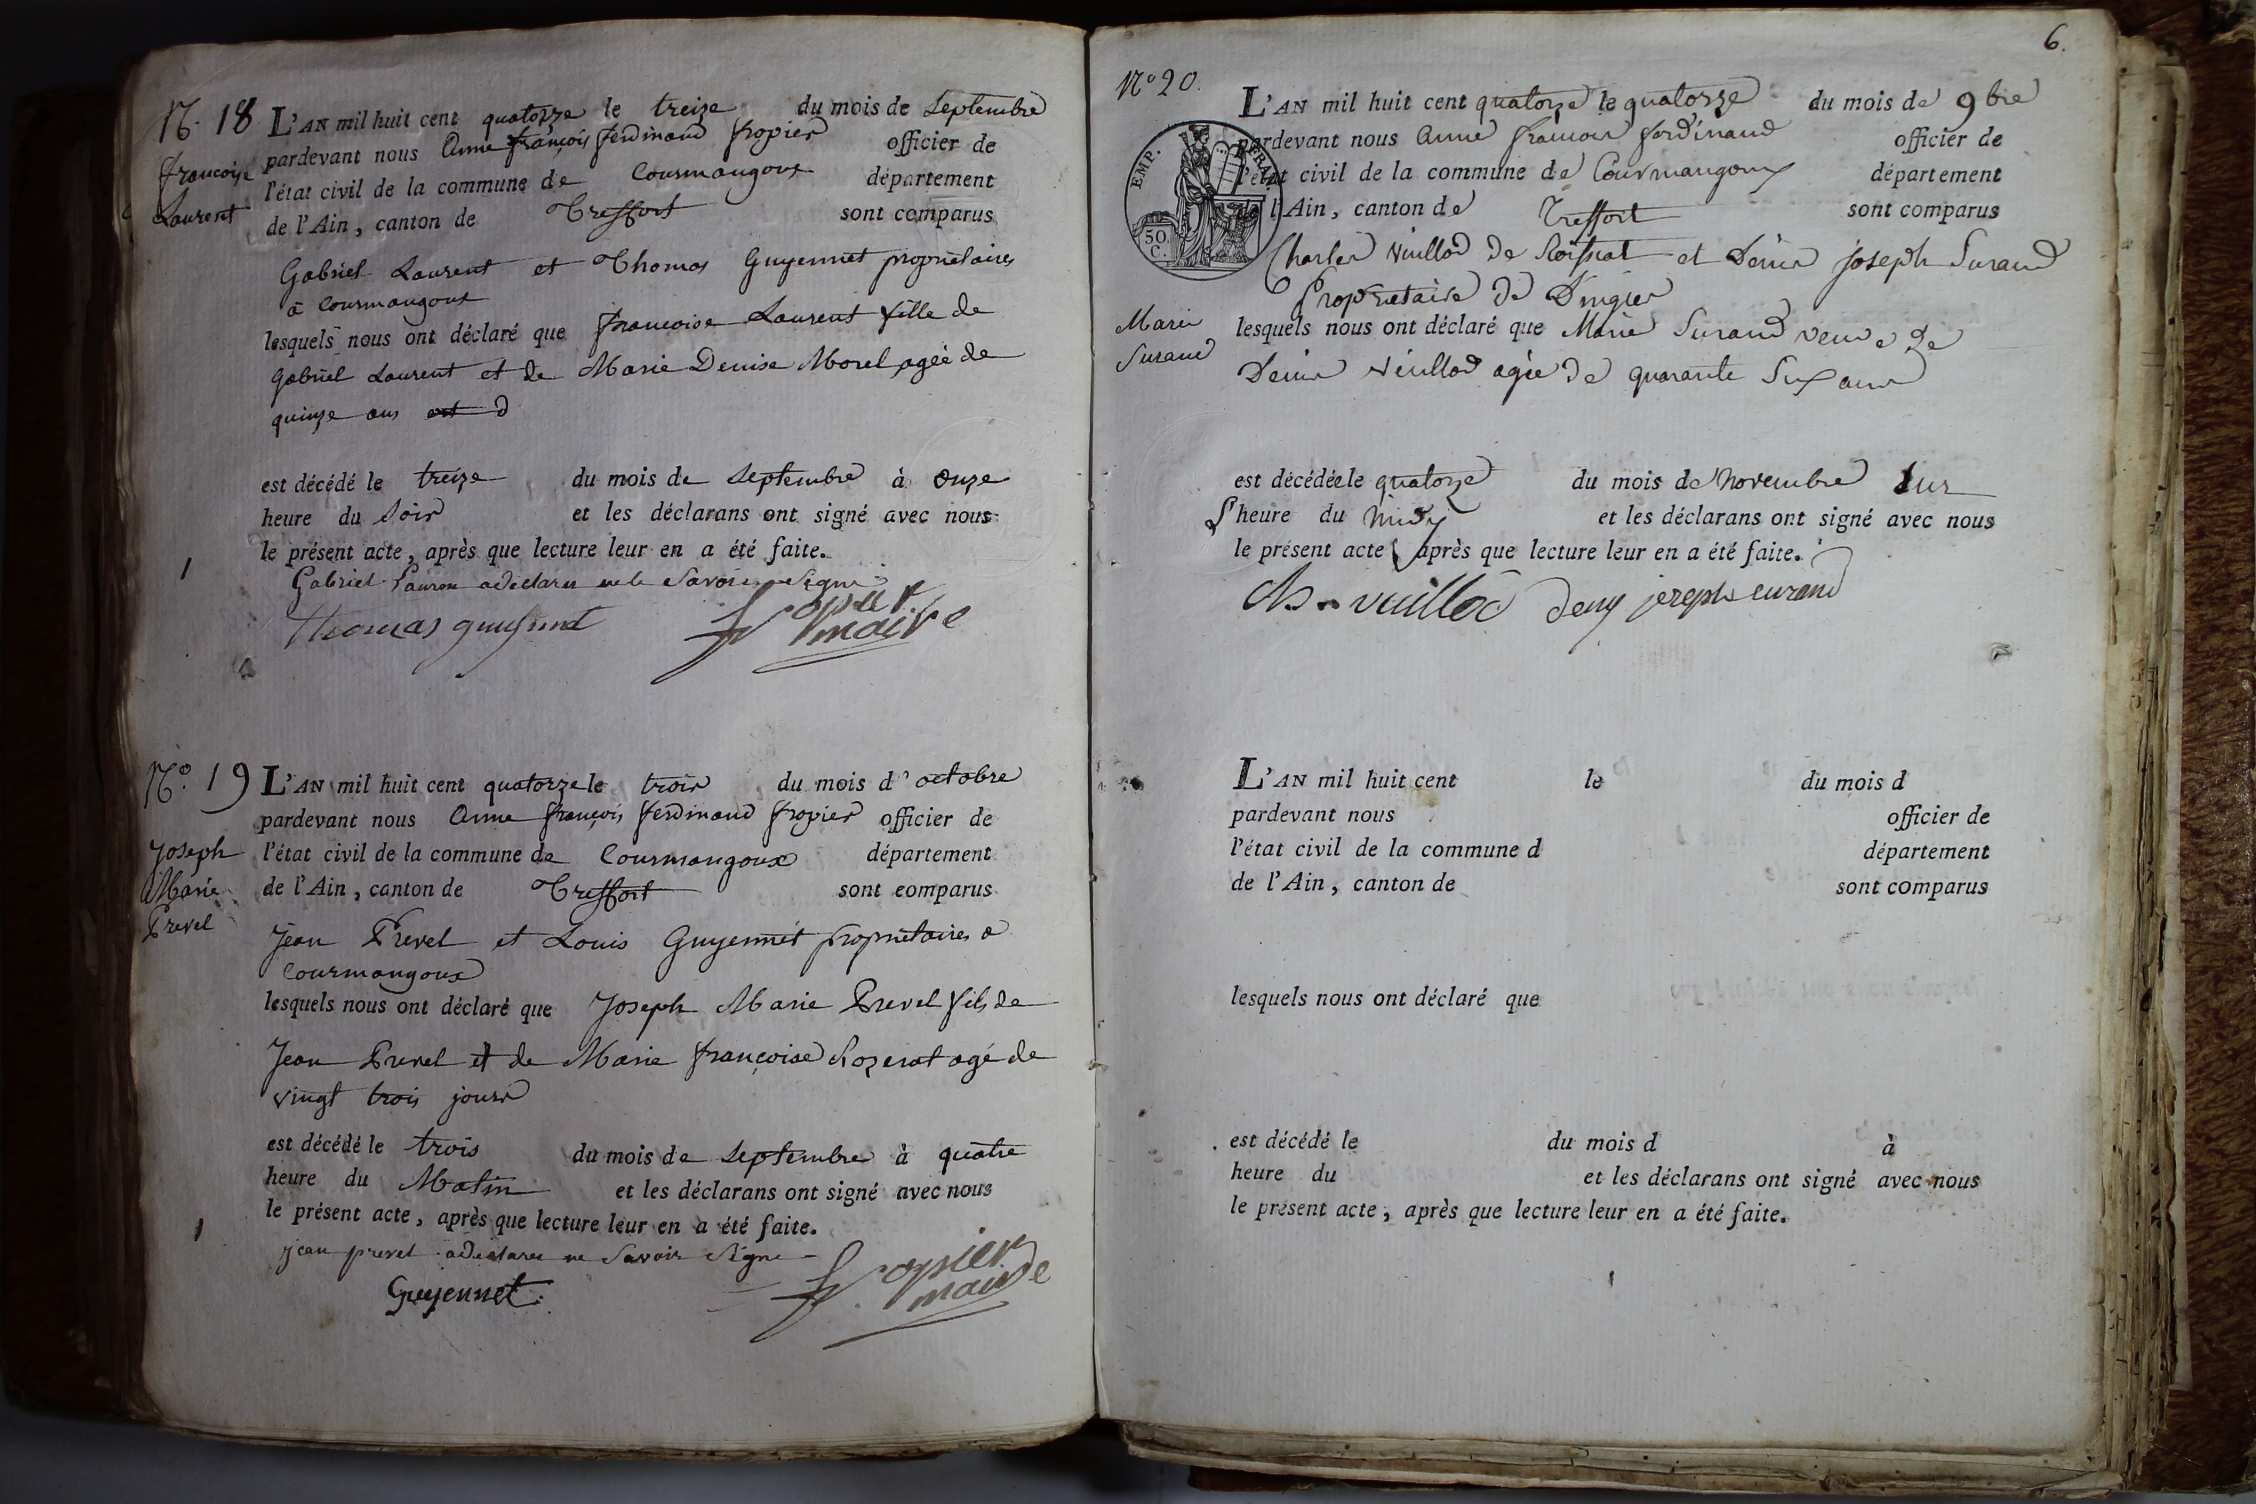 N°. 18 L'AN mil huit cent quatorze le treize du mois de Septembre
pardevant nous Anne françois ferdinand fropier officier de
françoise
l'état civil de la commune de Courmangoux département
Laurent
de l'Ain, canton de Treffort sont comparus
Gabriel Laurent et Thomas Guyennet propriétaires
à Courmangoux
lesquels nous ont déclaré que françoise Laurent fille de
Gabriel Laurent et de Marie Denise Morel agée de
quinze ans est d
est décédé le treize du mois de Septembre à onze
heure du Soir et les déclarans ont signé avec nous
le présent acte, après que lecture leur en a été faite.
Gabriel Lauren a déclarer ne Savoir Signe
thomas guyennet fropier
maire
N°. 19 L'AN mil huit cent quatorze le trois du mois d'octobre
pardevant nous Anne françois ferdinand fropier officier de
Joseph
l'état civil de la commune de Courmangoux département
Marie
de l'Ain, canton de Treffort sont comparus
Prevel
Jean Prevel et Louis Guyennet propriétaires a
Courmangoux
lesquels nous ont déclaré que Joseph Marie Prevel fils de
Jean Prevel et de Marie françoise Rozerat agé de
vingt trois jours
est décédé le trois du mois de Septembre à quatre
heure du Matin et les déclarans ont signé avec nous
le présent acte, après que lecture leur en a été faite.
jean prevel a declarer ne Savoir Signe
Guyennet fropier
maire
6.
N° 20.
L'AN mil huit cent quatorze le quatorze du mois de 9bre
pardevant nous Anne françois ferdinand officier de
l'état civil de la commune de Courmangoux département
de l'Ain, canton de Treffort sont comparus
EMP. FRAN.
50.
C.
Charles Vuillod de Roissiat et Denis joseph Surand
Propriétaire de Dingier
Marie
Surand
lesquels nous ont déclaré que Marie Surand veuve de
Denis Vuillod agée de quarante Six ans
est décédée le quatorze du mois de Novembre Sur
L'heure du Midy et les déclarans ont signé avec nous
le présent acte, après que lecture leur en a été faite.
Ch. vuillod deny jozeph surand
L'AN mil huit cent le du mois d
pardevant nous officier de
l'état civil de la commune d département
de l'Ain, canton de sont comparus
lesquels nous ont déclaré que
est décédé le du mois d à
heure du et les déclarans ont signé avec nous
le présent acte, après que lecture leur en a été faite.